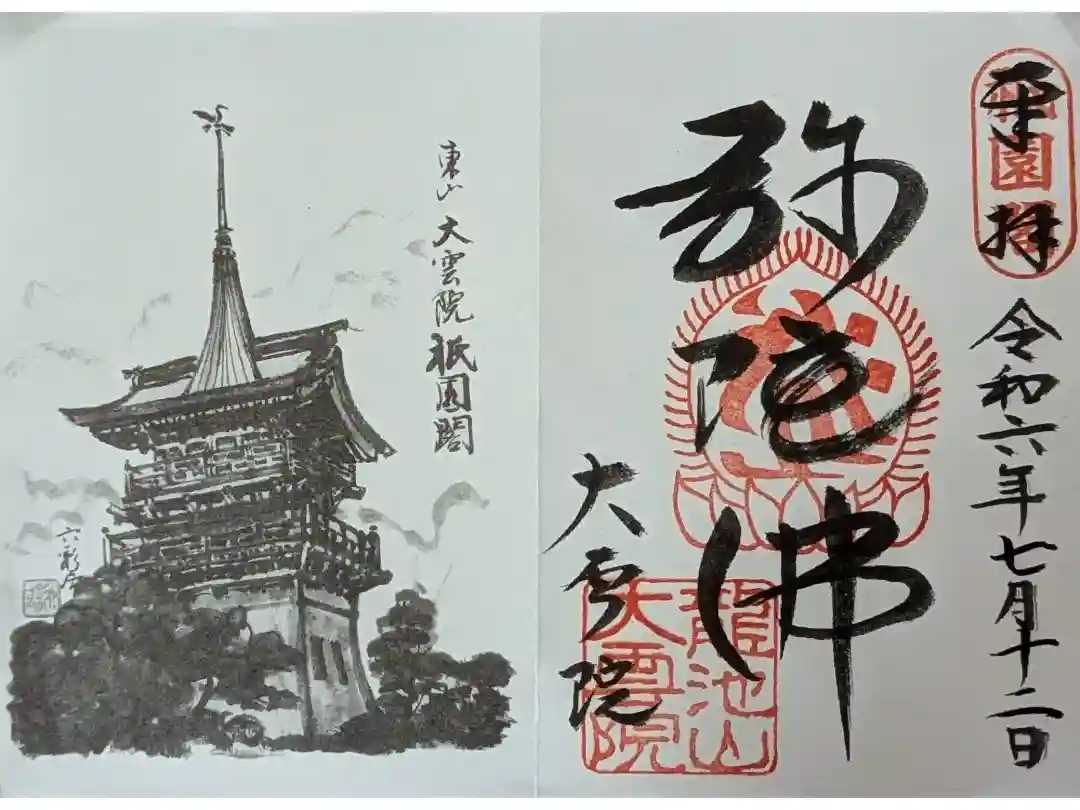 東山 大雲院 祇園閣
奉拝
祇園閣
令和六年七月十二日
弥陀佛
大雲院
龍池山
大雲院